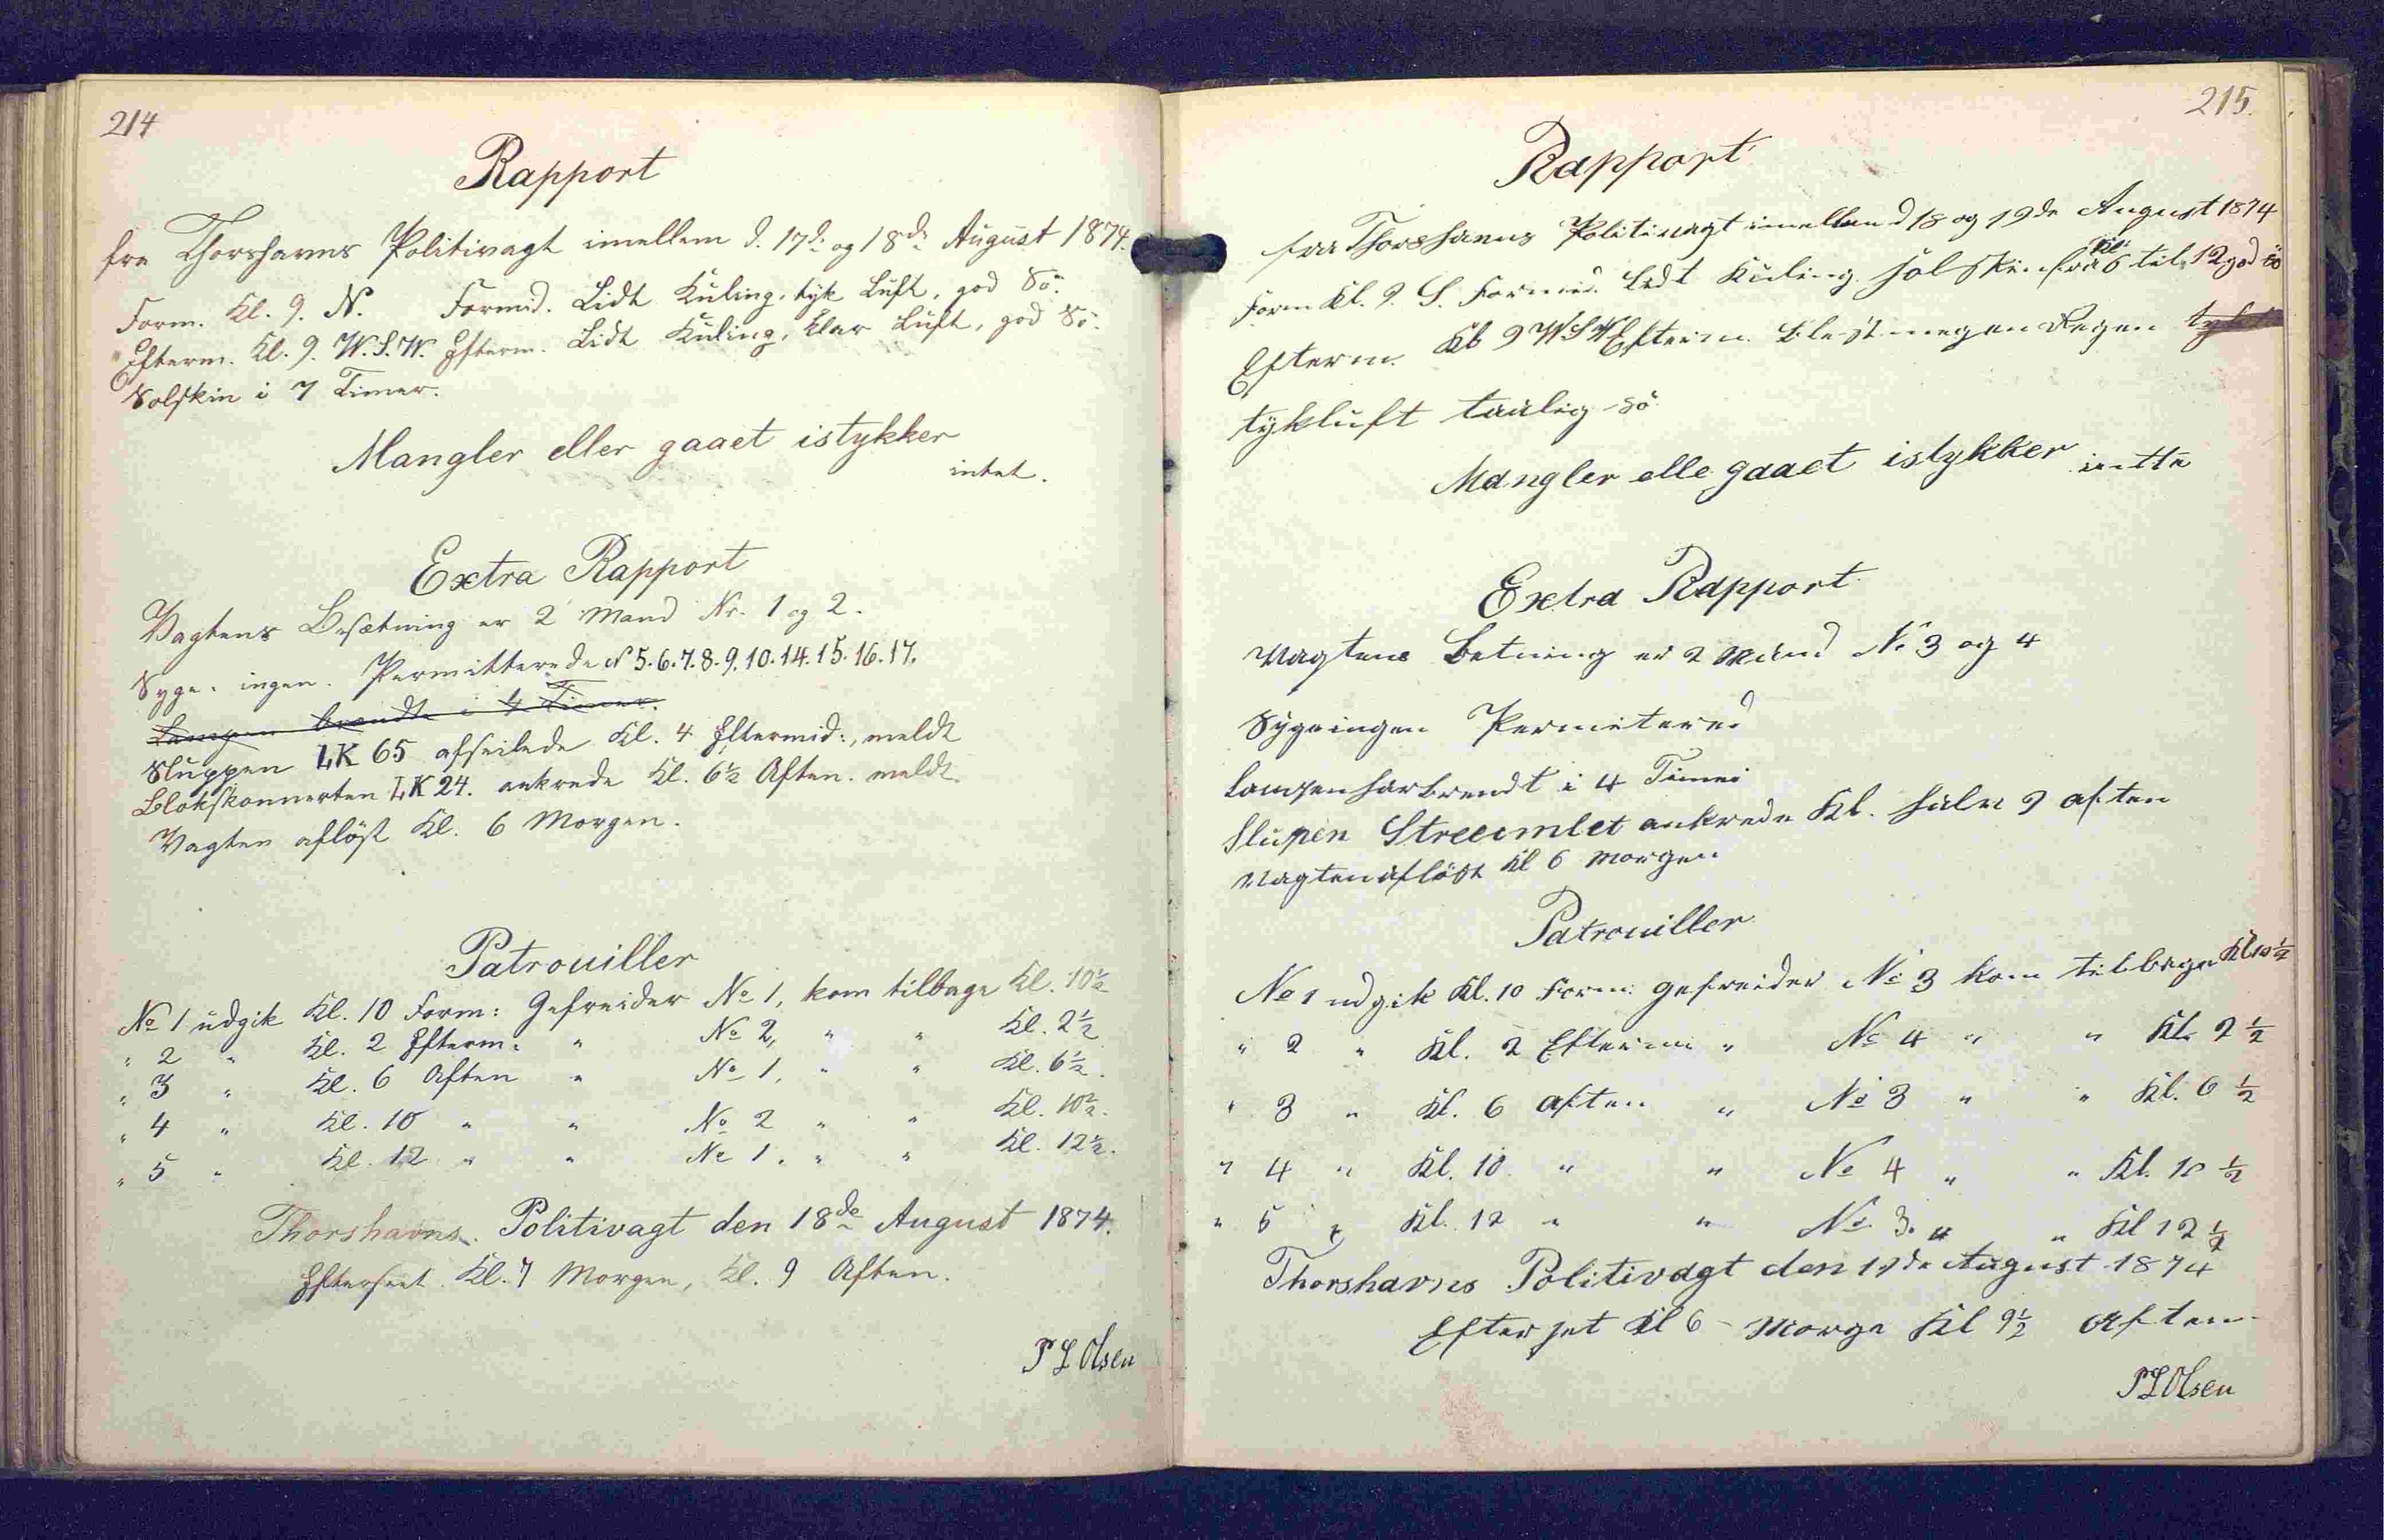 214
Rapport
fra Thorshavns Politivagt imellem d. 17de og 18de August 1874.
Form. Kl. 9. N. Formd. Lidt Kuling, tyk Luft, god Sö.
Efterm. Kl. 9. W.S.W. Efterm. Lidt Kuling, klar Luft, god Sö.
Solskin i 7 Timer.
Mangler eller gaaet istykker
intet.
Extra Rapport
Vagtens Besætning er 2 Mand Nr. 1 og 2.
Syge: ingen. Permitterede N 5.6.7.8.9.10.14.15.16.17.
Lampen brændte i 4 Timer.
Sluppen LK 65 afseilede Kl. 4 Eftermid:, meldt
Blokskonnerten LK 24. ankrede Kl. 6½ Aften. meldt.
Vagten aflöst Kl. 6 Morgen.
Patrouiller
No 1 udgik Kl. 10 Form: Gefreider No 1, kom tilbage Kl. 10½
" 2 " Kl. 2 Efterm: " No 2, " " Kl. 2½
" 3 " Kl. 6 Aften " No 1, " " Kl. 6½.
" 4 " Kl. 10 " " No 2 " " Kl. 10½.
" 5 " Kl. 12 " " No 1. " " Kl. 12½.
Thorshavns Politivagt den 18de August 1874.
Efterseet Kl. 7 Morgen, Kl. 9 Aften.
P L Olsen
215.
Rapport
fra Thorshavns Politivagt imellem d 18 og 19de August 1874
Form Kl. 9. S. Formid. Lidt Kuling. Solskin fra Kl 6 til 12 god sö
Efterm. Kl 9 WSW Efterm. Blest megen Regen tykt
tykluft taalig sö
Mangler elle gaaet istykker intte
Extra Rapport
Vagtens Betning er 2 Mand No 3 og 4
Syge ingen Permitered
Lampen har brendt i 4 Timer
Slupen Streeimlet ankrede Kl. halv 9 aften
Vagten aflöst Kl 6 Morgen
Patrouiller
No 1 udgik Kl. 10 Form: gefreider No 3 kom tilbage Kl 10½
" 2 " Kl. 2 Efterm " No 4 " " Kl. 2½
" 3 " Kl. 6 aften " No 3 " " Kl. 6½
" 4 " Kl. 10 " " No 4 " " Kl. 10½
" 5 " Kl. 12 " " No. 3. " " Kl 12½
Thorshavns Politivagt den 19de August 1874
Efterset Kl 6 Morge Kl 9½ Aften
P L Olsen